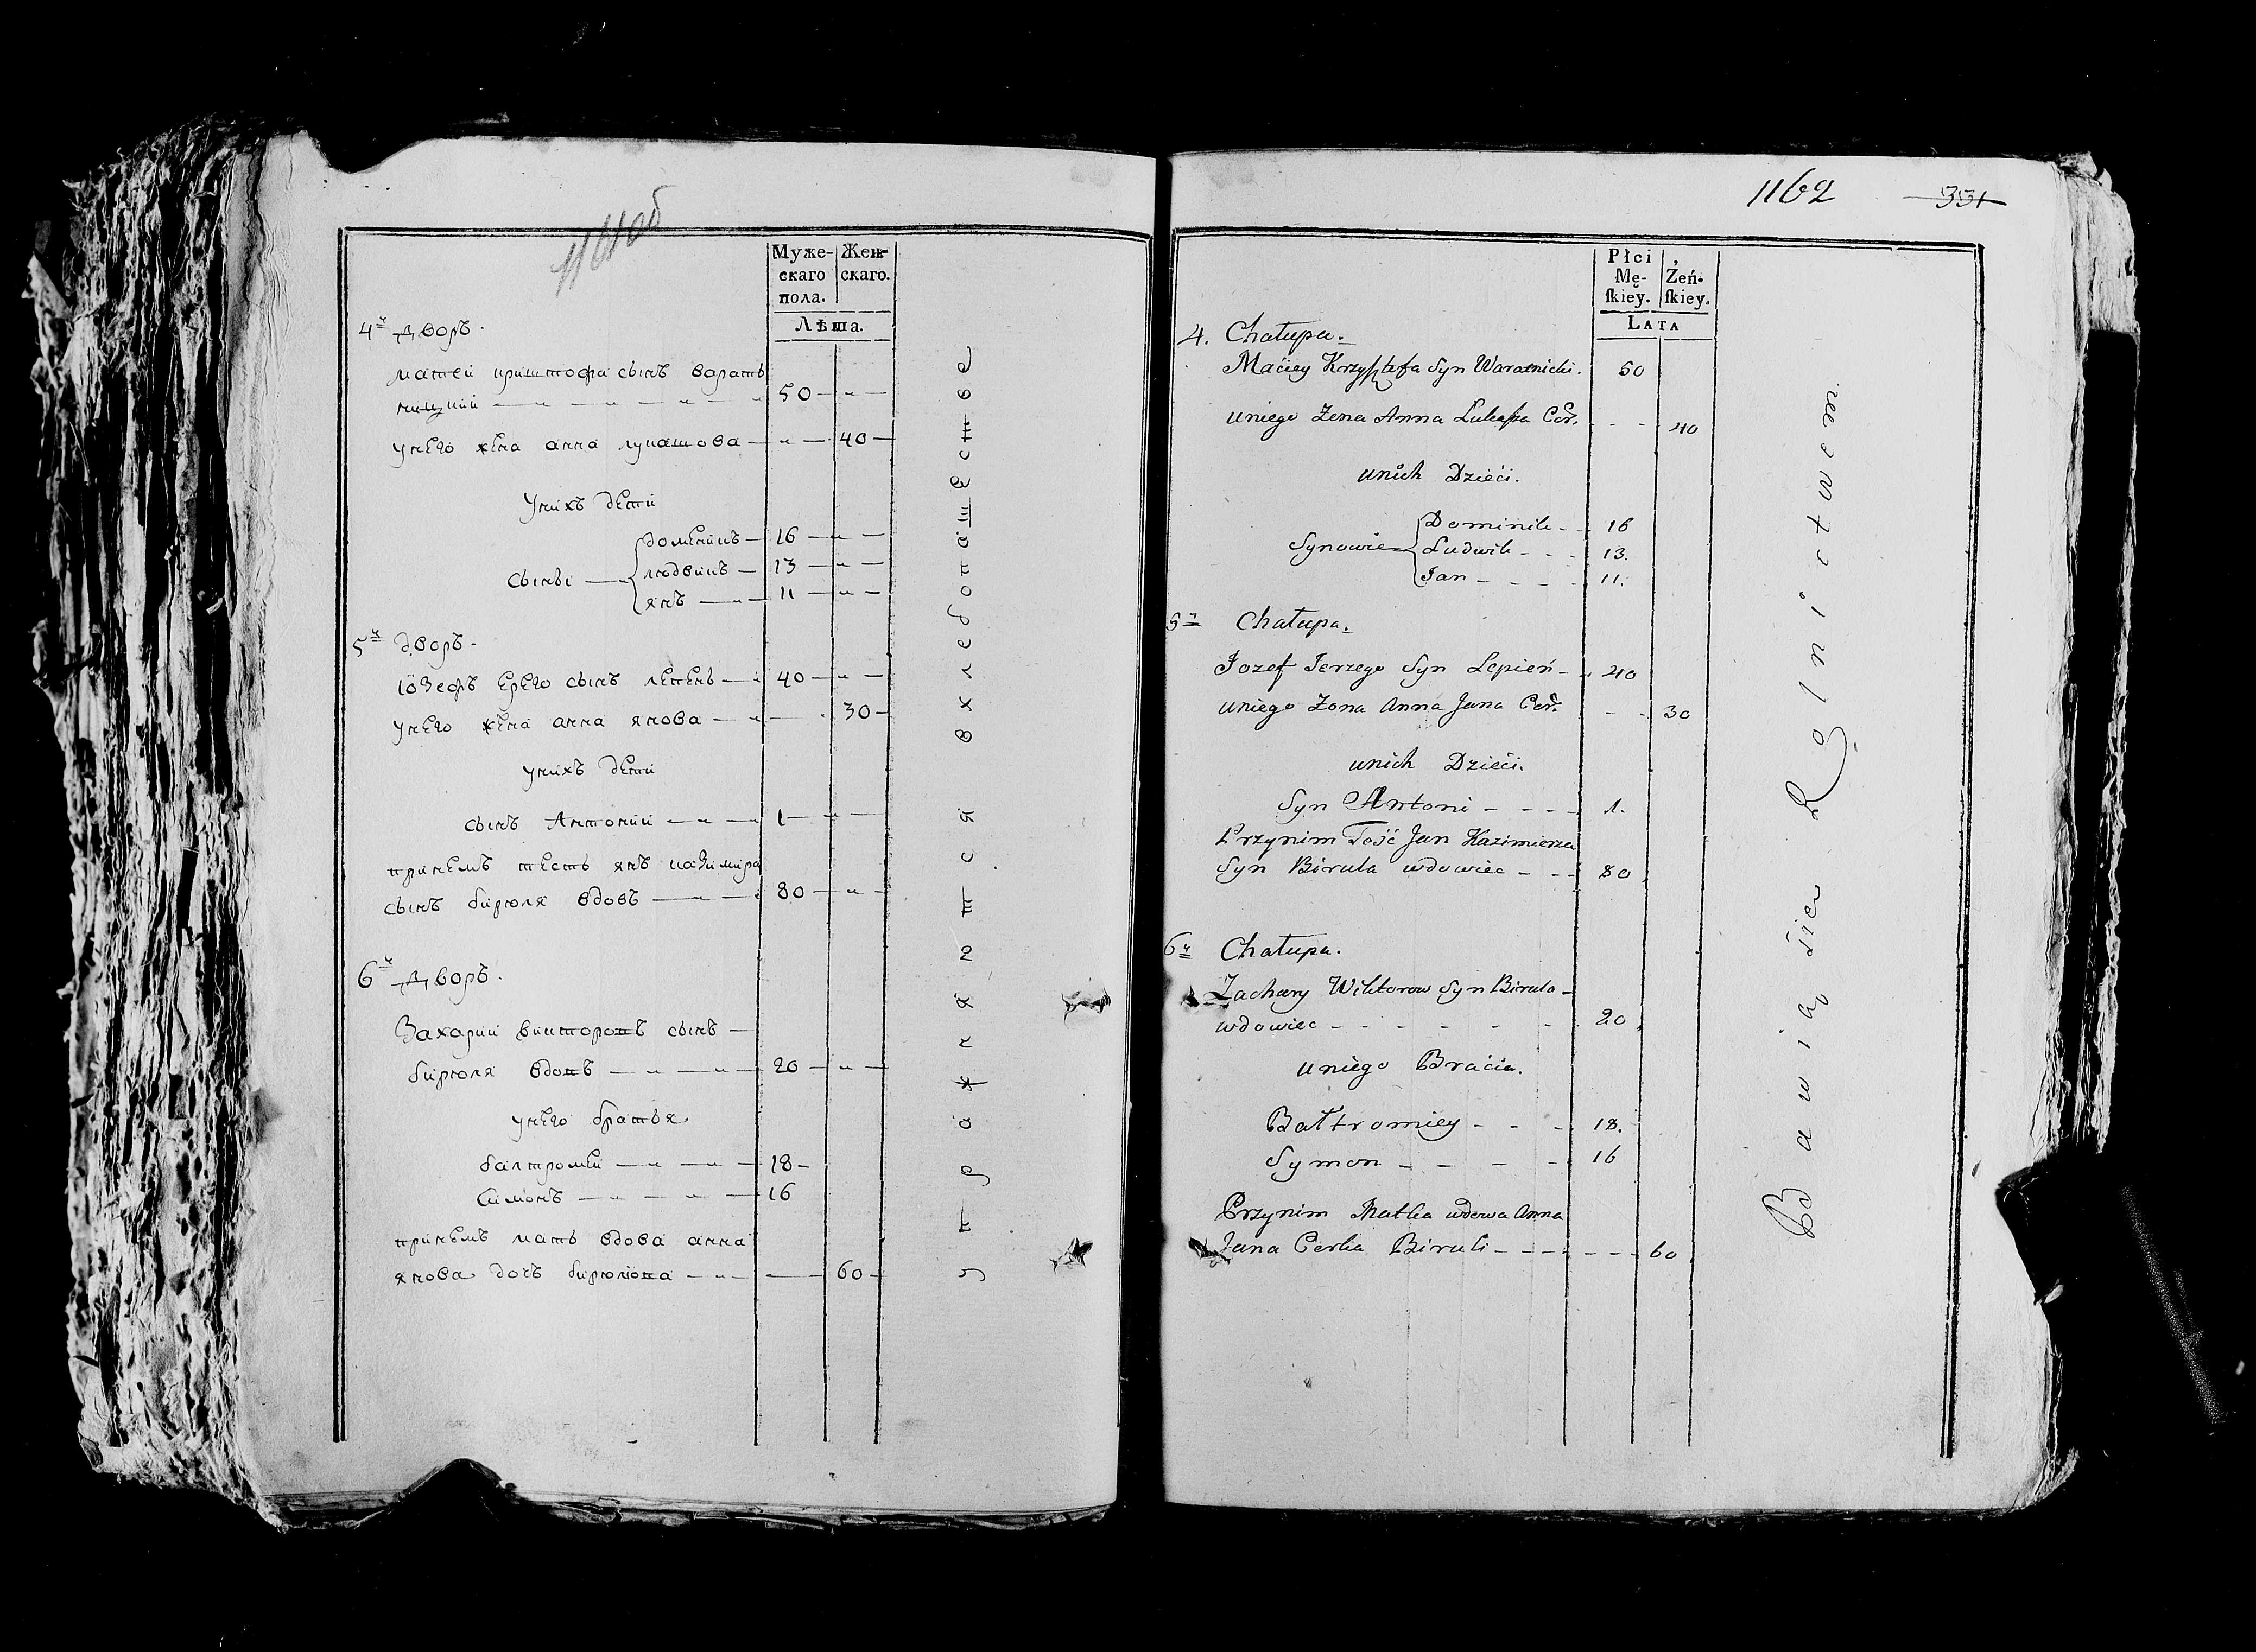 1161об
Муже-
скаго
пола.
Жен-
скаго.
Лѣта.
4й Дворъ.
матей криштофа сынъ варать
ницкий 50
унего жена анна лукашова 40
Унихъ дети
доменикъ 16
сыны людвикъ 13
янъ 11
5й дворъ.
Іозефъ Ерего сынъ лепень 40
унего жена анна янова 30
унихъ дети
сынъ Антоний 1
принемъ тесть янъ казимира
сынъ бирюля вдовъ 80
6й Дворъ.
Захарий викторовъ сынъ
бирюля вдовъ 20
унего братья
балтромей 18
Симонъ 16
принемъ мать вдова анна
янова дочъ бирюлова 60
упражняится
вхлебопашестве
1162 331
Płci
Mę-
ſkiey.
Żeń-
ſkiey.
LATA
4. Chałupa.
Maciey Krzysztofa Syn Waratnicki. 50
uniego Żena Anna Łukasza Cór. 40
unich Dzieci.
Dominik 16
Synowie Ludwik 13.
Jan 11.
5ta Chałupa.
Jozef Jerzego Syn Lepień 40
uniego Żona Anna Jana Cór. 30
unich Dzieci.
Syn Antoni 1.
Przynim Teść Jan Kazimierza
Syn Birula wdowiec 80
6ta Chałupa.
Zachary Wiktorow Syn Birula
wdowiec 20
uniego Bracia.
Bałtromiey 18.
Symon 16
Przynim Matka wdowa Anna
Jana Corka Biruli 60
Bawią śię Rolnictwem